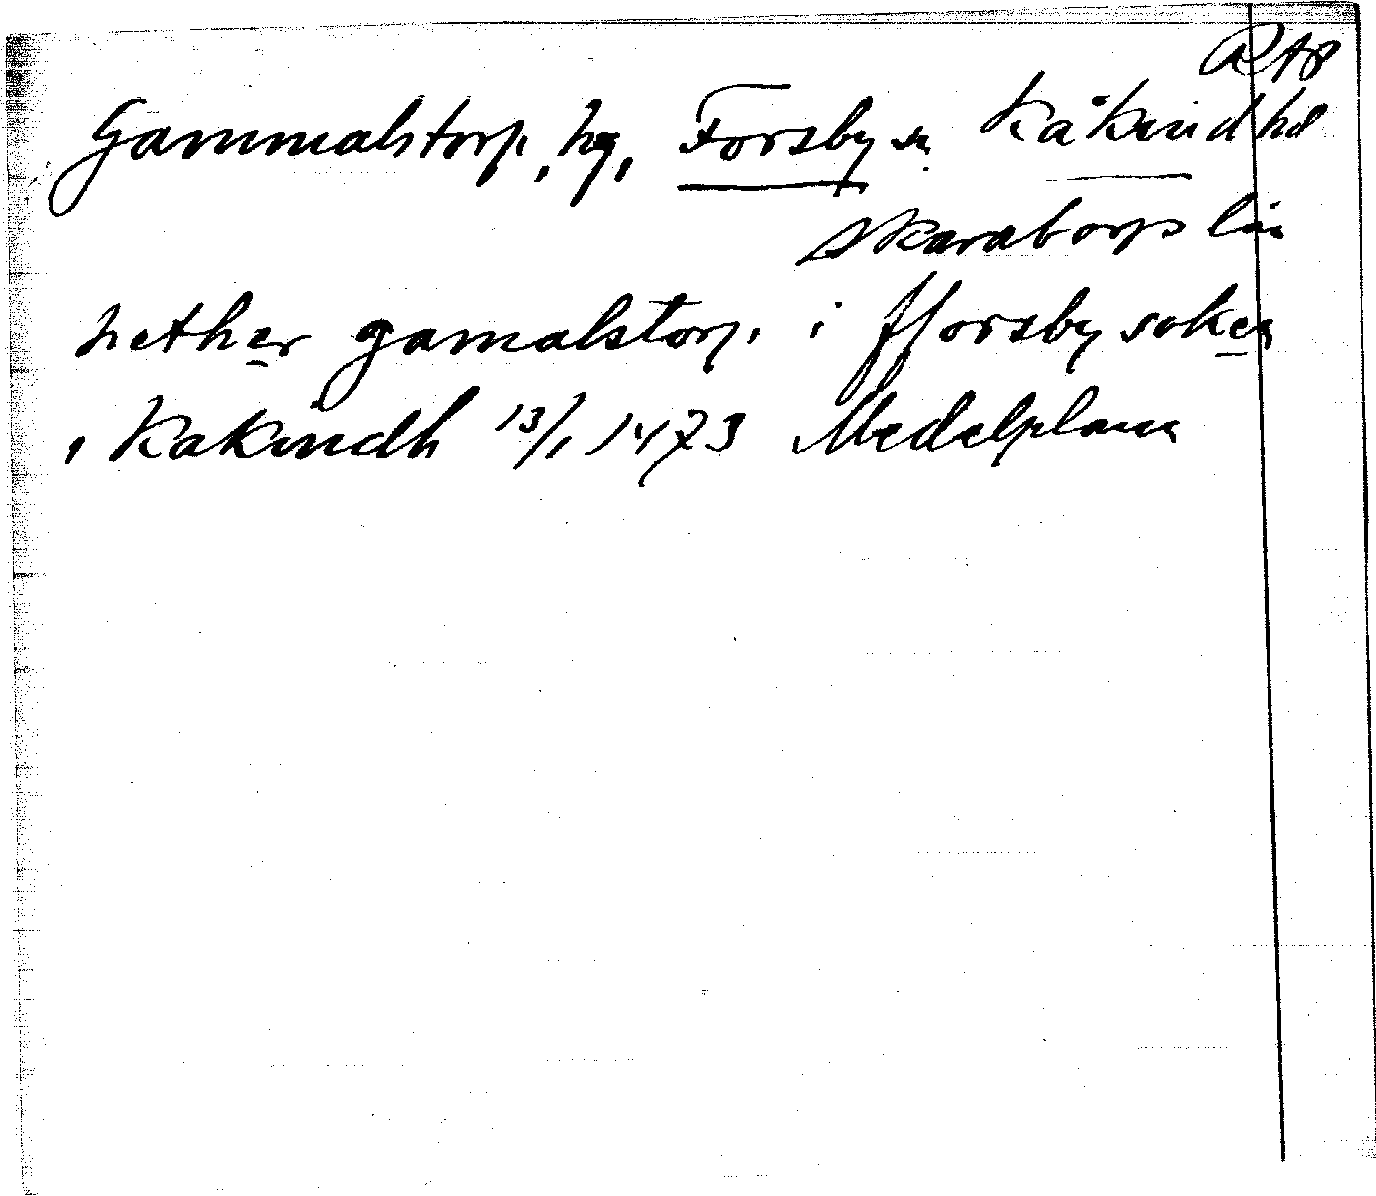 RAp
Gammalstorp, hg, Forsby sn Kåkind hd
Skaraborgs län
hether gamalstorp i fforsby soken
i Kakindh 13/1 1473 Medelplana